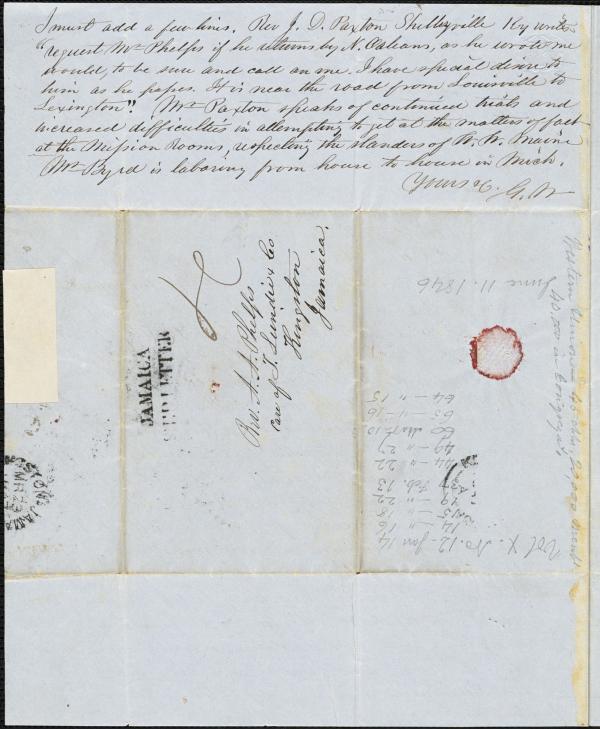 I must add a few lines. Rev J. D. Paxton Shelbyville Ky writes
"request Mr Phelps if he returns by N. Orleans, as he wrote me
would, to be sure and call on me. I have special desire to
him as he passes. It is near the road from Louisville to
Lexington". Mr Paxton speaks of continued trials and
increased difficulties in attempting to get at the matters of fact
at the Mission Rooms, respecting the slanders of
Mr Byrd is laboring from house to house in Mich.
Yours &c. G. W
JAMAICA
SHIP LETTER
Rev. A. A. Phelps
Care of J. Lundie & Co
Kingston
Jamaica.
June 11. 1846
Vol X. No. 12 - Jan 14
14 - " 16
15 - " 18
19 - " 22
27 Feb. 13
44 - " 22
49 - " 27
60 Mar - 10
65 - " - 16
64 - " 15